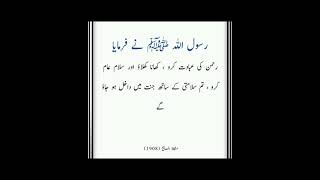 رسول اللہ ﷺ نے فرمایا
رحمن کی عبادت کرو ، کھانا کھلاؤ اور سلام عام
کرو ، تم سلامتی کے ساتھ جنت میں داخل ہو جاؤ
گے
(1908)